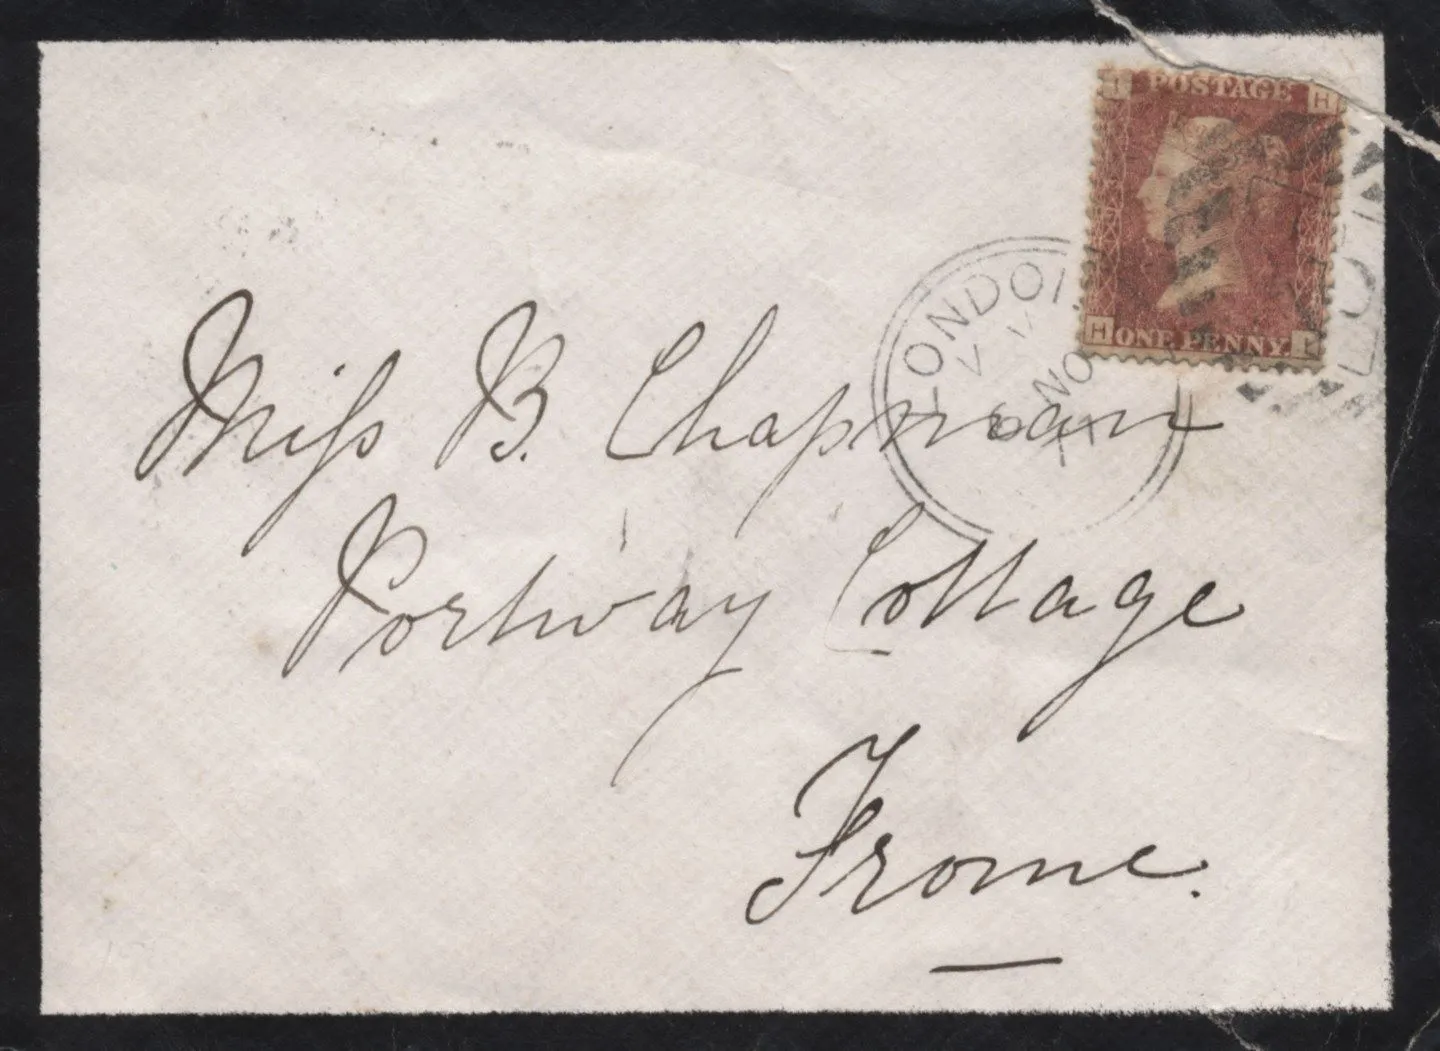 I POSTAGE H
H ONE PENNY. I
LONDON
NO
Miss B. Chapman
Portway Cottage
Frome.